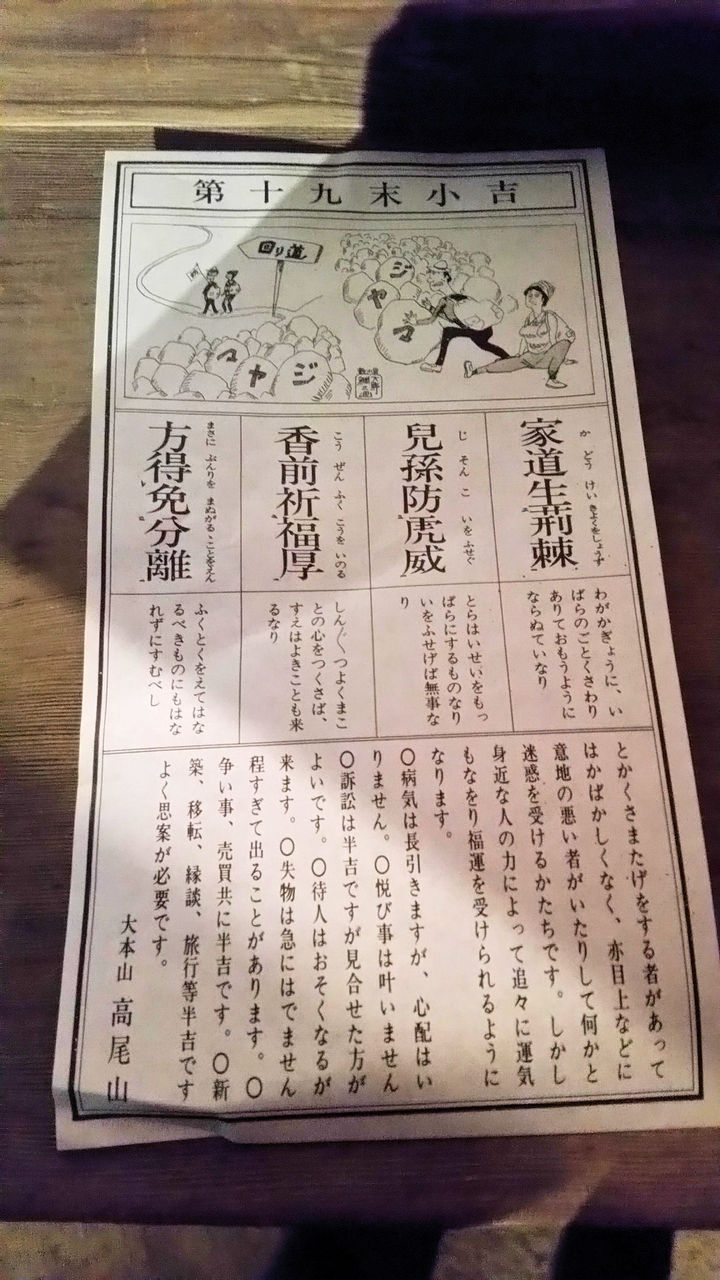 第十九末小吉
回り道
ジ
ヤ
マ
マ
ヤ
ジ
家道生荊棘
か どう けい きよくをしょうず
兒孫防虎威
じ そん こ いを ふせぐ
香前祈福厚
こう ぜん ふく こうを いのる
方得免分離
まさに ぶんりを まぬがる ことをえん
わがかぎょうに、い
ばらのごとくさわり
ありておもうように
ならぬていなり
とらはいせいをもっ
ぱらにするものなり
いをふせげば無事な
り
しん〴〵つよくまこ
との心をつくさば、
すえはよきことも来
るなり
ふくとくをえてはな
るべきものにもはな
れずにすむべし
とかくさまたげをする者があって
はかばかしくなく、亦目上などに
意地の悪い者がいたりして何かと
迷惑を受けるかたちです。しかし
身近な人の力によって追々に運気
もなをり福運を受けられるように
なります。
〇病気は長引きますが、心配はい
りません。〇悦び事は叶いません
〇訴訟は半吉ですが見合せた方が
よいです。〇待人はおそくなるが
来ます。〇失物は急にはでません
程すぎて出ることがあります。〇
争い事、売買共に半吉です。〇新
築、移転、縁談、旅行等半吉です
よく思案が必要です。
大本山 高尾山